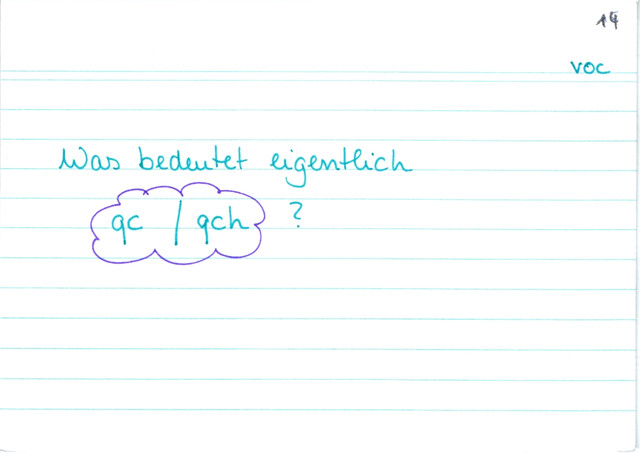 14
voc
Was bedeutet eigentlich
qc / qch ?